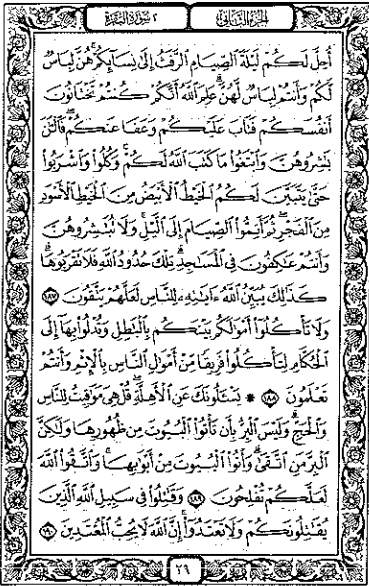 الجزء الثاني
٢ سورة البقرة
أُحِلَّ لَكُمْ لَيْلَةَ ٱلصِّيَامِ ٱلرَّفَثُ إِلَىٰ نِسَآئِكُمْ هُنَّ لِبَاسٌ
لَّكُمْ وَأَنتُمْ لِبَاسٌ لَّهُنَّ عَلِمَ ٱللَّهُ أَنَّكُمْ كُنتُمْ تَخْتَانُونَ
أَنفُسَكُمْ فَتَابَ عَلَيْكُمْ وَعَفَا عَنكُمْ فَٱلْـَٰٔنَ
بَـٰشِرُوهُنَّ وَٱبْتَغُوا۟ مَا كَتَبَ ٱللَّهُ لَكُمْ وَكُلُوا۟ وَٱشْرَبُوا۟
حَتَّىٰ يَتَبَيَّنَ لَكُمُ ٱلْخَيْطُ ٱلْأَبْيَضُ مِنَ ٱلْخَيْطِ ٱلْأَسْوَدِ
مِنَ ٱلْفَجْرِ ثُمَّ أَتِمُّوا۟ ٱلصِّيَامَ إِلَى ٱلَّيْلِ وَلَا تُبَـٰشِرُوهُنَّ
وَأَنتُمْ عَـٰكِفُونَ فِى ٱلْمَسَـٰجِدِ تِلْكَ حُدُودُ ٱللَّهِ فَلَا تَقْرَبُوهَا
كَذَٰلِكَ يُبَيِّنُ ٱللَّهُ ءَايَـٰتِهِۦ لِلنَّاسِ لَعَلَّهُمْ يَتَّقُونَ ١٨٧
وَلَا تَأْكُلُوٓا۟ أَمْوَٰلَكُم بَيْنَكُم بِٱلْبَـٰطِلِ وَتُدْلُوا۟ بِهَآ إِلَى
ٱلْحُكَّامِ لِتَأْكُلُوا۟ فَرِيقًا مِّنْ أَمْوَٰلِ ٱلنَّاسِ بِٱلْإِثْمِ وَأَنتُمْ
تَعْلَمُونَ ١٨٨ * يَسْـَٔلُونَكَ عَنِ ٱلْأَهِلَّةِ قُلْ هِىَ مَوَٰقِيتُ لِلنَّاسِ
وَٱلْحَجِّ وَلَيْسَ ٱلْبِرُّ بِأَن تَأْتُوا۟ ٱلْبُيُوتَ مِن ظُهُورِهَا وَلَـٰكِنَّ
ٱلْبِرَّ مَنِ ٱتَّقَىٰ وَأْتُوا۟ ٱلْبُيُوتَ مِنْ أَبْوَٰبِهَا وَٱتَّقُوا۟ ٱللَّهَ
لَعَلَّكُمْ تُفْلِحُونَ ١٨٩ وَقَـٰتِلُوا۟ فِى سَبِيلِ ٱللَّهِ ٱلَّذِينَ
يُقَـٰتِلُونَكُمْ وَلَا تَعْتَدُوٓا۟ إِنَّ ٱللَّهَ لَا يُحِبُّ ٱلْمُعْتَدِينَ ١٩٠
٢٩